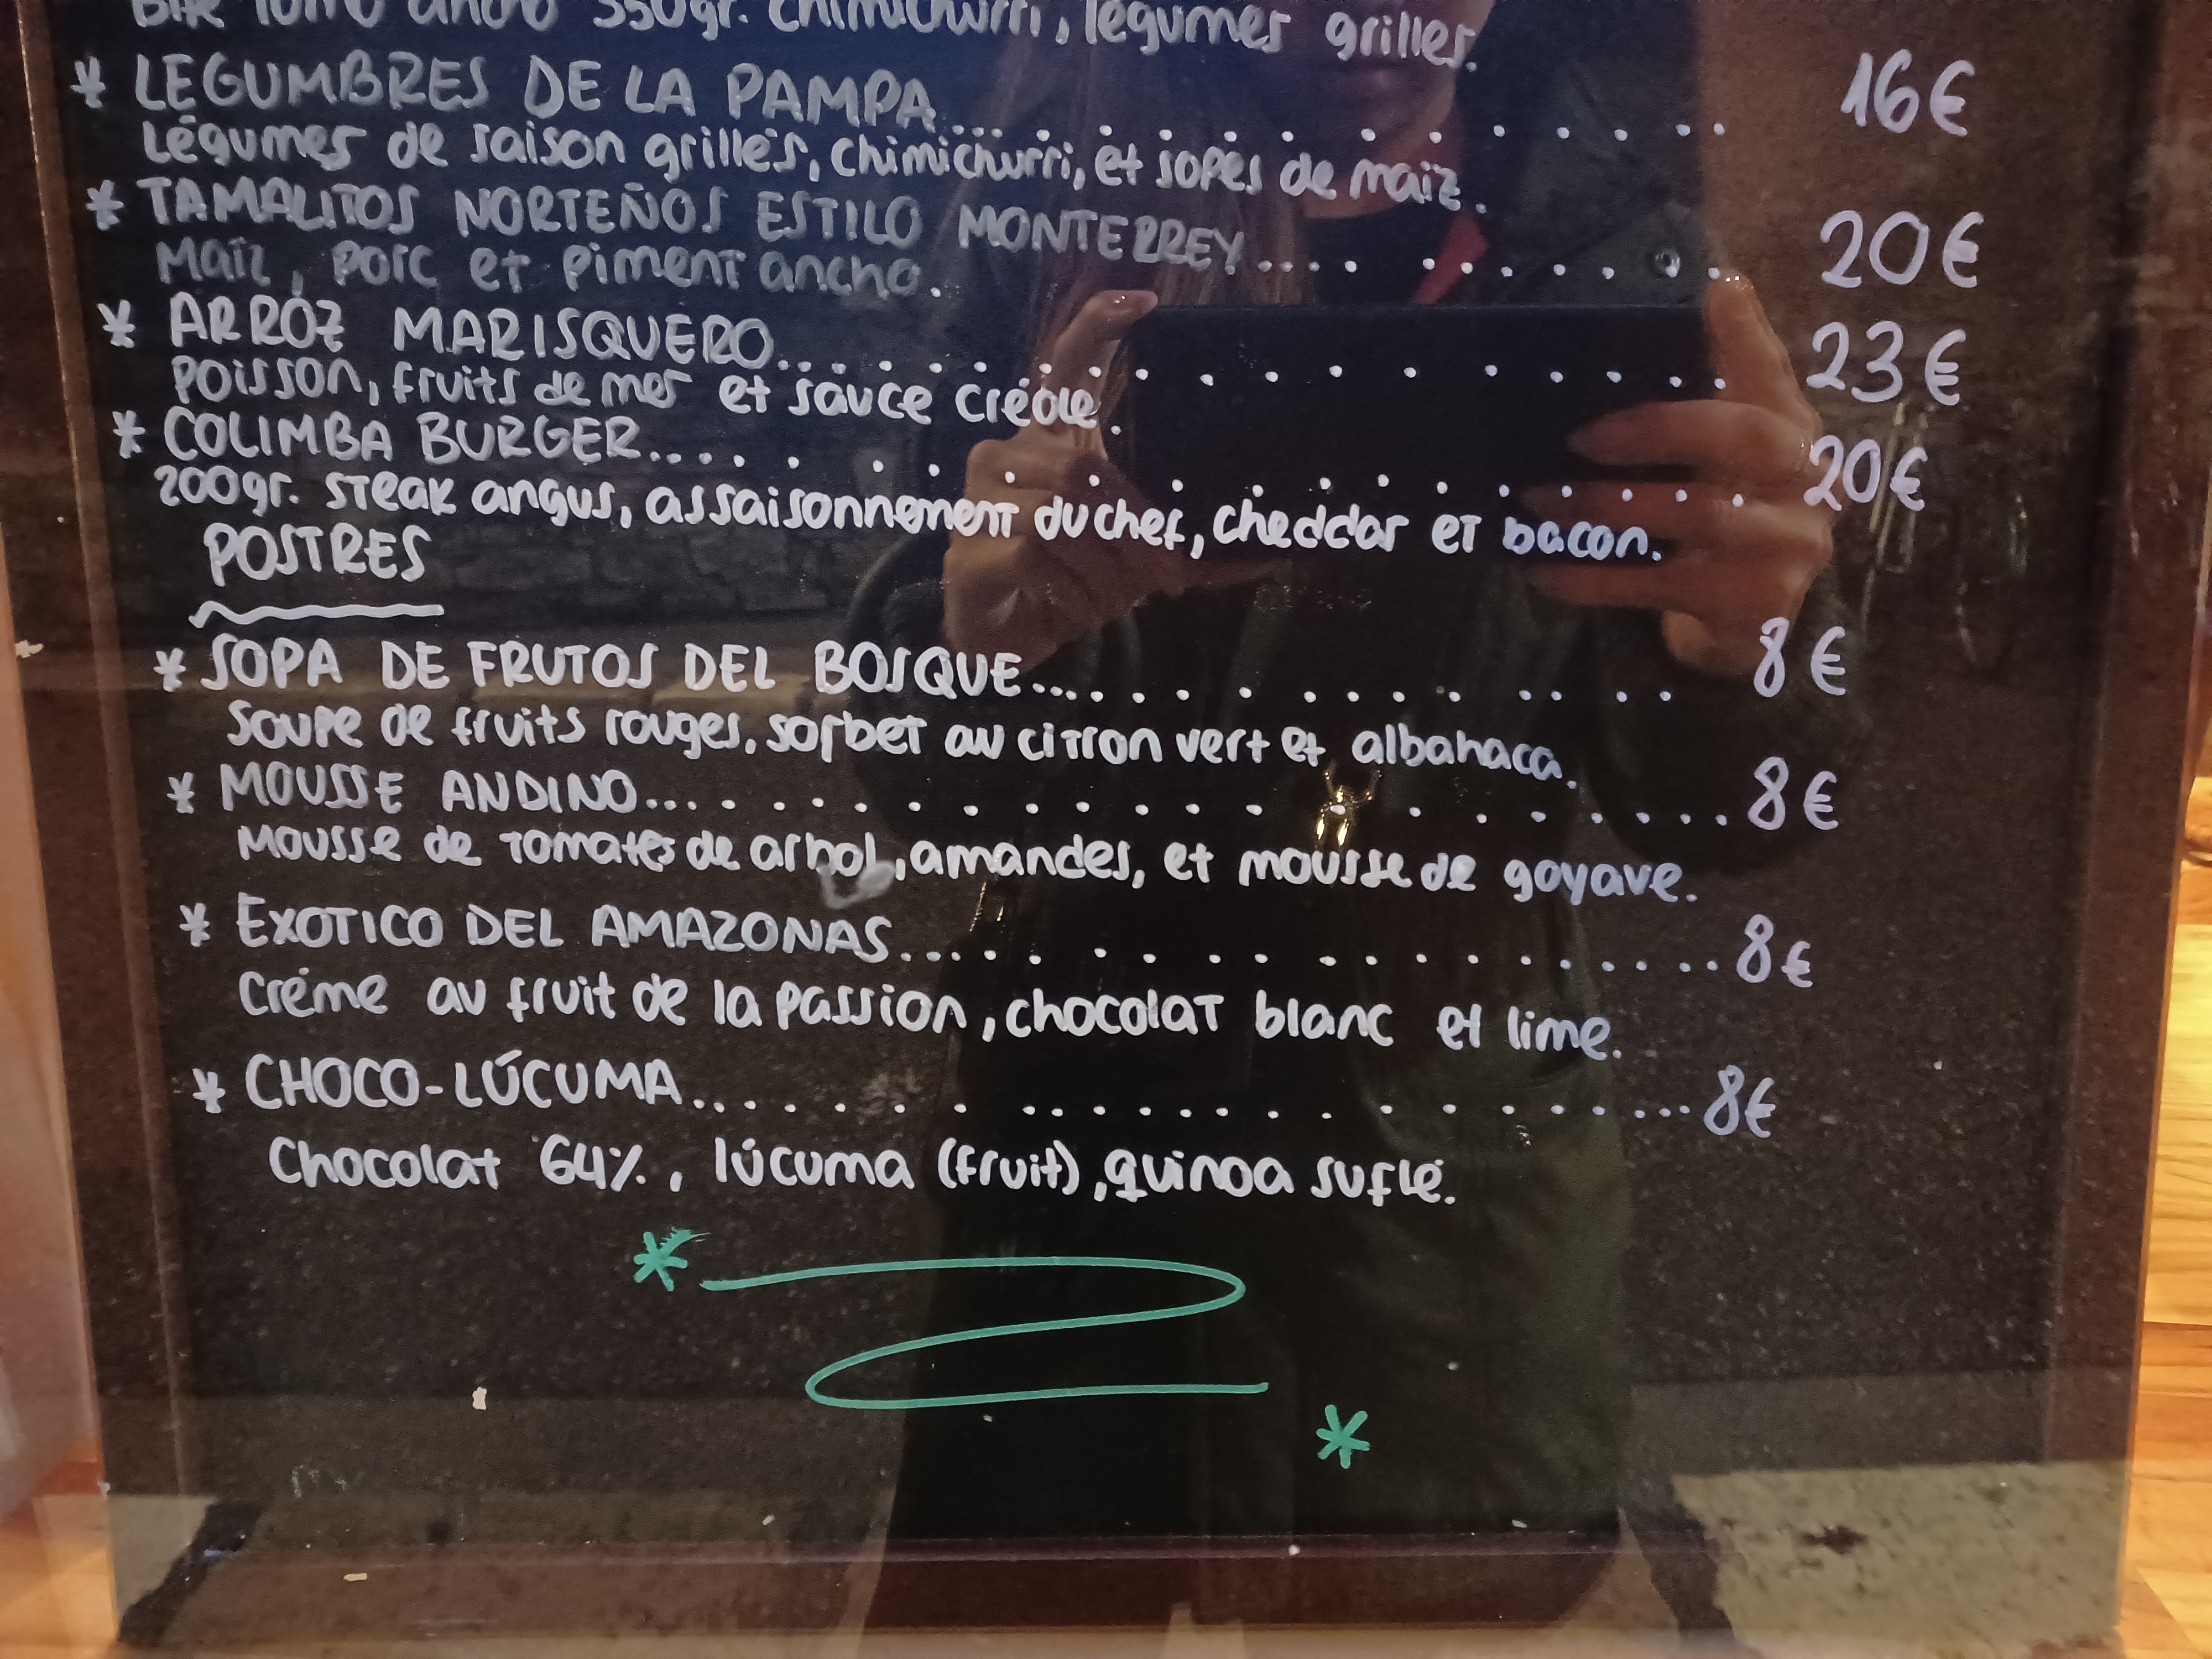 350gr. chimichurri, légumes grillés.
* LÉGUMBRES DE LA PAMPA................ 16€
Légumes de saison grillés, chimichurri, et sopes de maïz.
* TAMALITOS NORTEÑOS ESTILO MONTERREY........... 20€
Maïz, porc et piment ancho.
* ARRÓZ MARISQUERO.................. 23€
Poisson, fruits de mer et sauce créole.
* COLIMBA BURGER.................. 20€
200gr. steak angus, assaisonnement du chef, cheddar et bacon.
POSTRES
* SOPA DE FRUTOS DEL BOSQUE.............. 8€
Soupe de fruits rouges, sorbet au citron vert et albahaca.
* MOUSSE ANDINO.................... 8€
Mousse de tomates de arbol, amandes, et mousse de goyave.
* EXOTICO DEL AMAZONAS.................. 8€
Créme au fruit de la passion, chocolat blanc et lime.
* CHOCO-LÚCUMA..................... 8€
Chocolat 64%, lúcuma (fruit), quinoa suflé.